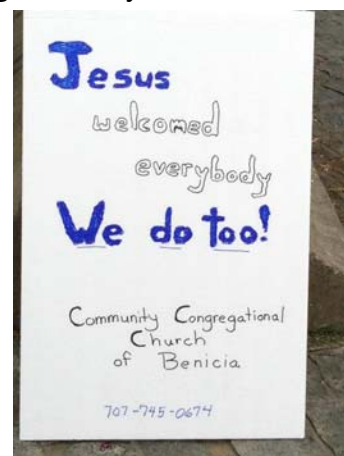 Jesus
welcomed
everybody
We do too!
Community Congregational
Church
of Benicia
707-745-0674